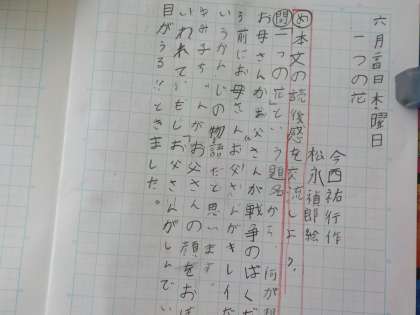 六月二日木・曜日
一つの花
今西祐行作
松永禎郎絵
め本文の読後感を交流しよう。
問「一つの花」という題名から 何が
お母さんがお父さんが戦争のばくだ
う前にお母さんお父さんがキレイだ
いうかんじの物語だと思います。
きみ子ちゃんが「お父さんの顔をおぼ
いれていもし「お父さんがしんでい
目がうる!!ときました。